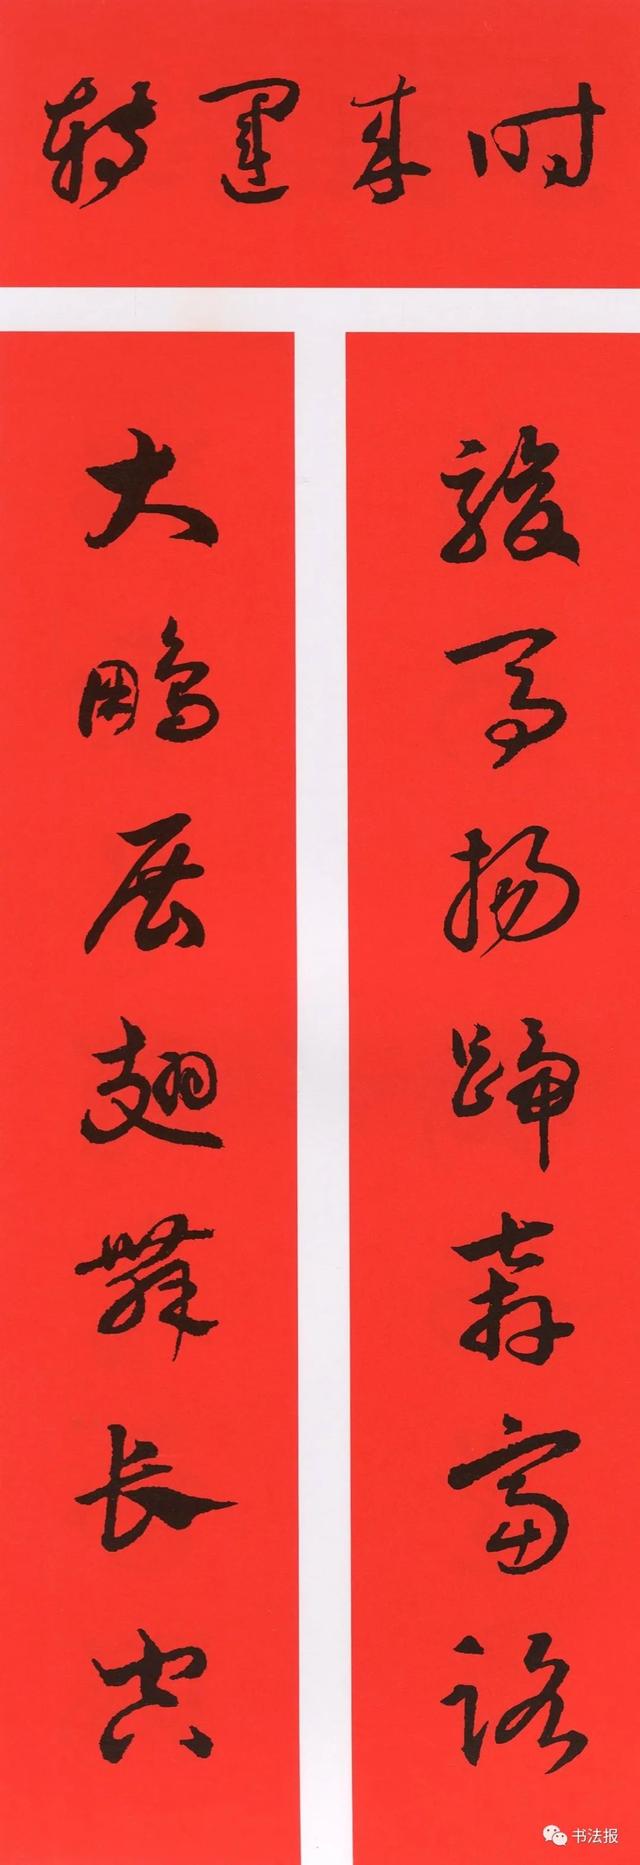 时来运转
骏马扬蹄奔富路
大鹏展翅舞长空
书法报